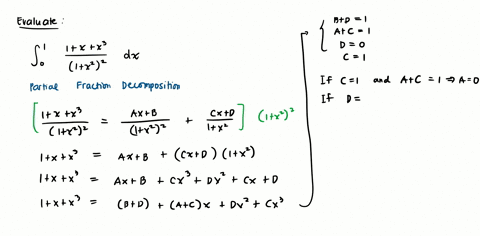 Evaluate :
∫₀¹ (1+x+x³)/(1+x²)² dx
Partial Fraction Decomposition
[ (1+x+x³)/(1+x²)² = (Ax+B)/(1+x²)² + (Cx+D)/(1+x²) ] (1+x²)²
1+x+x³ = Ax+B + (Cx+D)(1+x²)
1+x+x³ = Ax+B + Cx³ + Dx² + Cx + D
1+x+x³ = (B+D) + (A+C)x + Dx² + Cx³
B+D = 1
A+C = 1
D = 0
C = 1
If C=1 and A+C = 1 ⇒ A=0
If D =